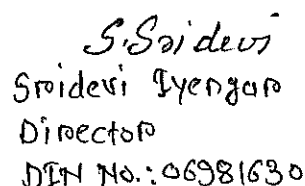 S. Sridevi
Sridevi Iyengar
Director
DIN No.: 06981630